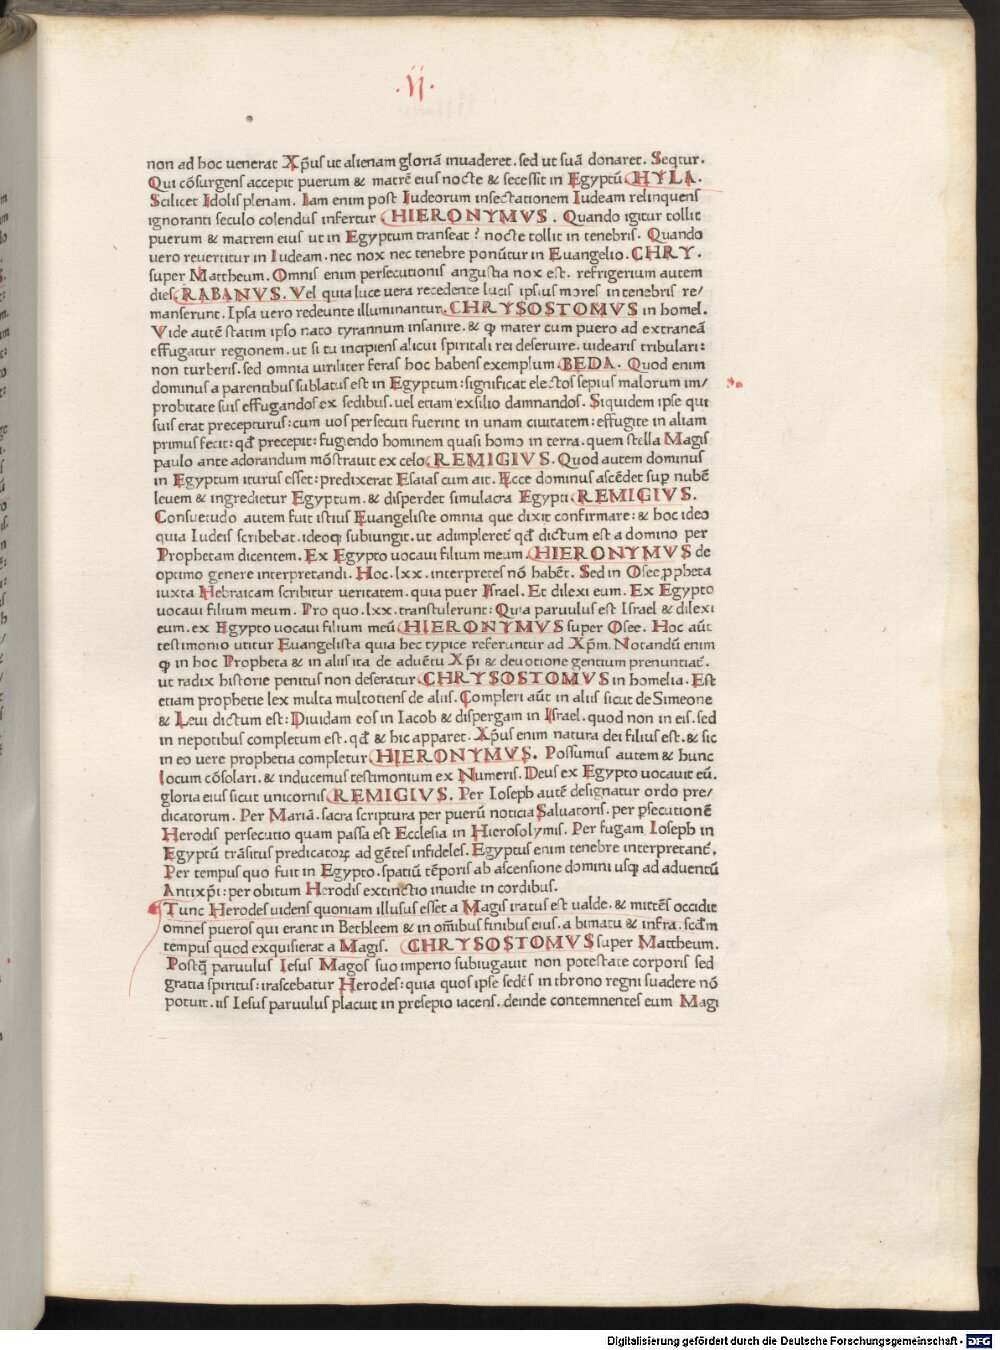 ·VI·
non ad hoc uenerat Xp̄us ut alienam gloriā inuaderet. sed ut suā donaret. Seqtur.
Qui cōsurgens accepit puerum & matrē eius nocte & secessit in Egyptū. HYLA.
Scilicet Idolis plenam. Iam enim post Iudeorum insectationem Iudeam relinquens
ignoranti seculo colendus infertur. HIERONYMVS. Quando igitur tollit
puerum & matrem eius ut in Egyptum transeat? nocte tollit in tenebris. Quando
uero reuertitur in Iudeam. nec nox nec tenebre ponūtur in Euangelio. CHRY.
super Mattheum. Omnis enim persecutionis angustia nox est. refrigerium autem
dies. RABANVS. Vel quia luce uera recedente lucis ipsius mores in tenebris re/
manserunt. Ipsa uero redeunte illuminantur. CHRYSOSTOMVS in homel.
Vide autē statim ipso nato tyrannum insanire. & ꝙ mater cum puero ad extraneā
effugatur regionem. ut si tu incipiens alicui spiritali rei deseruire. uidearis tribulari:
non turberis. sed omnia uiriliter feras hoc habens exemplum. BEDA. Quod enim
dominus a parentibus sublatus est in Egyptum: significat electos sepius malorum im/
probitate suis effugandos ex sedibus. uel etiam exsilio damnandos. Siquidem ipse qui
suis erat precepturus: cum uos persecuti fuerint in unam ciuitatem: effugite in aliam
primus fecit: qd̄ precepit: fugiendo hominem quasi homo in terra. quem stella Magis
paulo ante adorandum mōstrauit ex celo. REMIGIVS. Quod autem dominus
in Egyptum iturus esset: predixerat Esaias cum ait. Ecce dominus ascēdet suꝑ nubē
leuem & ingredietur Egyptum. & disperdet simulacra Egypti. REMIGIVS.
Consuetudo autem fuit istius Euangeliste omnia que dixit confirmare: & hoc ideo
quia Iudeis scribebat. ideoqȝ subiungit. ut adimpleret̄ qd̄ dictum est a domino per
Prophetam dicentem. Ex Egypto uocaui filium meum. HIERONYMVS de
optimo genere interpretandi. Hoc. lxx. interpretes nō habēt. Sed in Osee ꝓpheta
iuxta Hebraicam scribitur ueritatem. quia puer Israel. Et dilexi eum. Ex Egypto
uocaui filium meum. Pro quo. lxx. transtulerunt: Quia paruulus est Israel & dilexi
eum. ex Egypto uocaui filium meū. HIERONYMVS super Osee. Hoc aūt
testimonio utitur Euangelista quia hec typice referuntur ad Xp̄m. Notandū enim
ꝙ in hoc Propheta & in aliis ita de aduētu Xp̄i & deuotione gentium prenuntiat̄.
ut radix historie penitus non deseratur. CHRYSOSTOMVS in homelia. Est
etiam prophetie lex multa multotiens de aliis. Compleri aūt in aliis sicut de Simeone
& Leui dictum est: Diuidam eos in Iacob & dispergam in Israel. quod non in eis. sed
in nepotibus completum est. qd̄ & hic apparet. Xp̄us enim natura dei filius est. & sic
in eo uere prophetia completur. HIERONYMVS. Possumus autem & hunc
locum cōsolari. & inducemus testimonium ex Numeris. Deus ex Egypto uocauit eū.
gloria eius sicut unicornis. REMIGIVS. Per Ioseph autē designatur ordo pre/
dicatorum. Per Mariā. sacra scriptura per puerū noticia Saluatoris. per ꝑsecutionē
Herodis persecutio quam passa est Ecclesia in Hierosolymis. Per fugam Ioseph in
Egyptū trāsitus predicatoꝝ ad gētes infideles. Egyptus enim tenebre interpretant̄.
Per tempus quo fuit in Egypto. spatiū tēporis ab ascensione domini usqȝ ad aduentū
Antixp̄i: per obitum Herodis extinctio inuidie in cordibus.
Tunc Herodes uidens quoniam illusus esset a Magis iratus est ualde. & mittēs occidit
omnes pueros qui erant in Bethleem & in oīnibus finibus eius. a bimatu & infra. scd̄m
tempus quod exquisierat a Magis. CHRYSOSTOMVS super Mattheum.
Postq̄ paruulus Iesus Magos suo imperio subiugauit non potestate corporis sed
gratia spiritus: irascebatur Herodes: quia quos ipse sedēs in throno regni suadere nō
potuit. iis Iesus paruulus placuit in presepio iacens. deinde contemnentes eum Magi
Digitalisierung gefördert durch die Deutsche Forschungsgemeinschaft - DFG